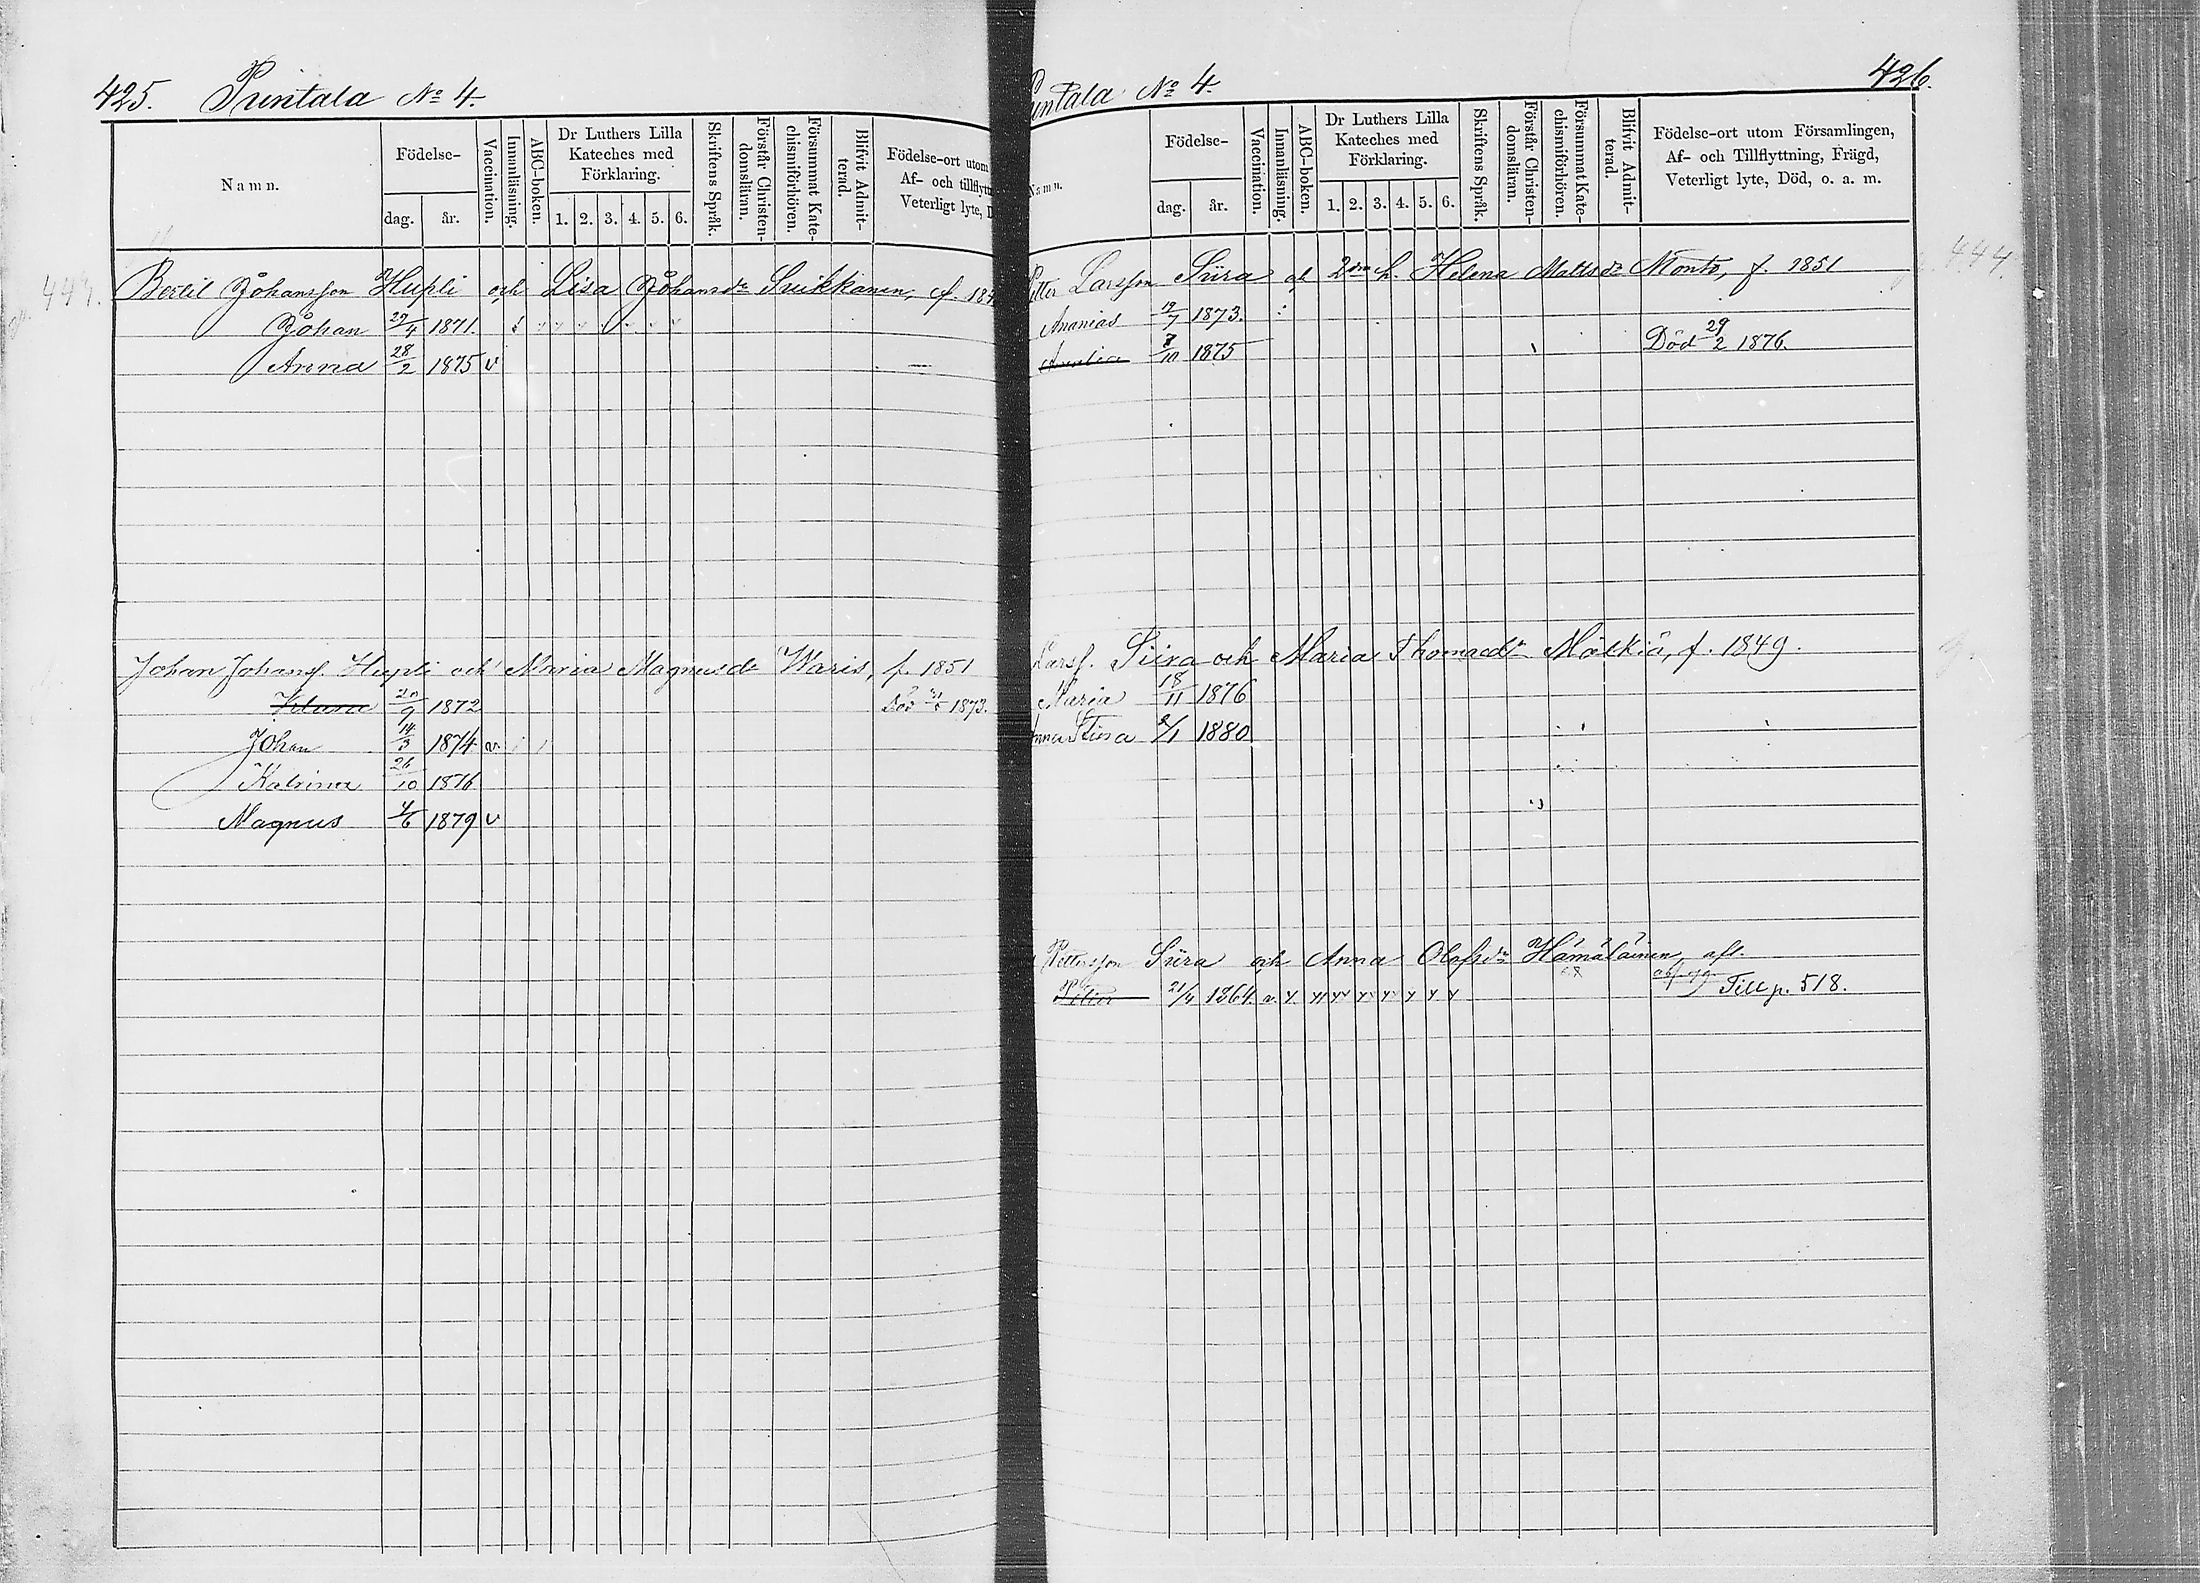 425. Puntala No 4.
Namn.
Födelse-
dag. år.
Vaccination.
Innanläsning.
ABC-boken.
Dr Luthers Lilla
Kateches med
Förklaring.
1. 2. 3. 4. 5. 6.
Skriftens Språk.
Förstår Christen-
domsläran.
Försummat Kate-
chismiförhören.
Blifvit Admit-
terad.
Födelse-ort utom
Af- och tillflytt
Veterligt lyte, D
443.
Bertil Johansson Hupli och Lisa Johansdr Suikkanen, f. 184
Johan 29/4 1871.
Anna 28/2 1875 v
Johan Johanss. Hupli och Maria Magnusdr Waris, f. 1851
Klara 20/9 1872 Död 1873.
Johan 14/3 1874 v.
Katrina 26/10 1876
Magnus 4/6 1879 v
untala No 4. 426.
Namn.
Födelse-
dag. år.
Vaccination.
Innanläsning.
ABC-boken.
Dr Luthers Lilla
Kateches med
Förklaring.
1. 2. 3. 4. 5. 6.
Skriftens Språk.
Förstår Christen-
domsläran.
Försummat Kate-
chismiförhören.
Blifvit Admit-
terad.
Födelse-ort utom Församlingen,
Af- och Tillflyttning, Frägd,
Veterligt lyte, Död, o. a. m.
444
Petter Larsson Siira och 2dra h. Helena Mattsdr Monto, f. 1851
Ananias 19/7 1873.
8/10 1875 Död 29/2 1876.
Larss. Siira och Maria Thomasdr Mälkiä, f. 1849.
Maria 18/11 1876
Anna Stina 2/1 1880
Pettersson Siira och Anna Olofsdr Hämäläinen, afl.
Petter 21/4 1864 v. Till p. 518.